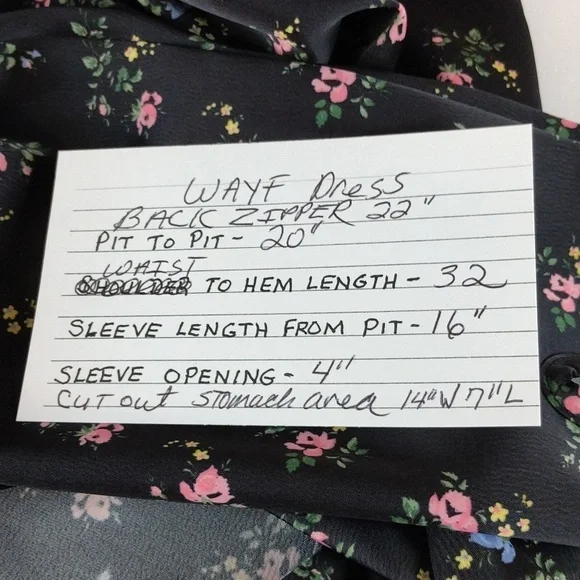 WAYF Dress
BACK ZIPPER 22"
PIT TO PIT - 20"
WAIST
SHOULDER TO HEM LENGTH - 32
SLEEVE LENGTH FROM PIT - 16"
SLEEVE OPENING - 4"
CUT OUT STOMACH area 14"W 7"L